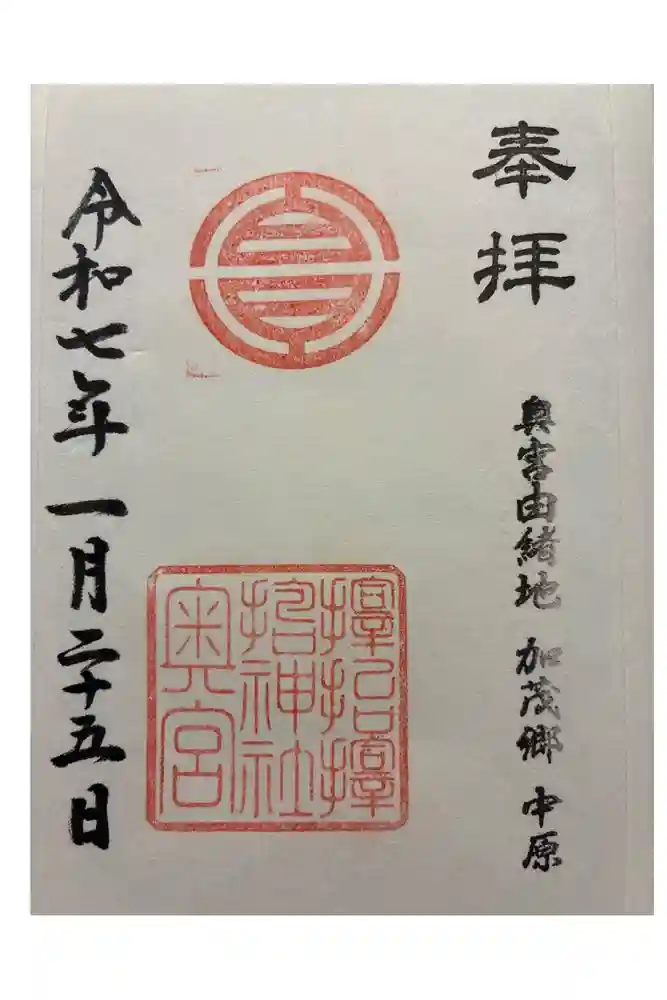 奉拝
奥宮由緒地 加茂郷 中原
神社
奥宮
令和七年一月二十五日